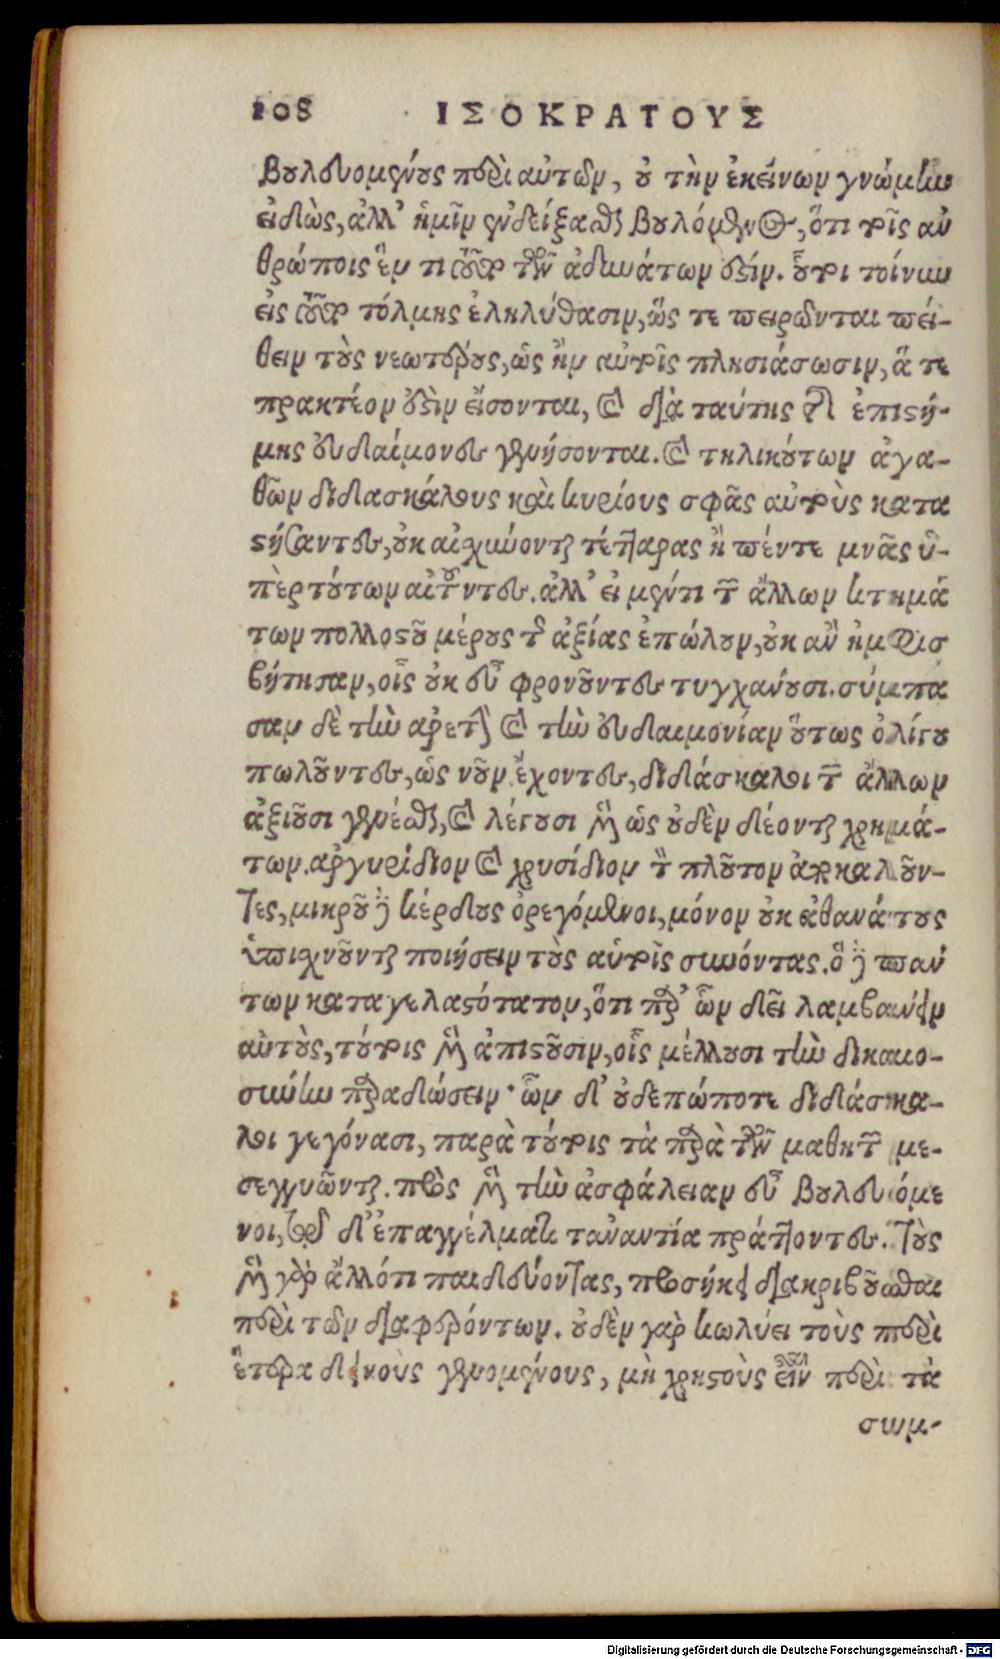 108 ΙΣΟΚΡΑΤΟΥΣ
βουλευομένους περὶ αὐτῶν, οὐ τὴν ἐκείνων γνώμην
εἰδὼς, ἀλλ' ἡμῖν ἐνδείξασθαι βουλόμενος, ὅτι τοῖς ἀν
θρώποις ἓν τι τούτων τῶν ἀδυνάτων ἐστίν. οὗτοι τοίνυν
εἰς τοῦτο τόλμης ἐληλύθασιν, ὥς τε πειρῶνται πεί-
θειν τοὺς νεωτέρους, ὡς ἢν αὐτοῖς πλησιάσωσιν, ἅ τε
πρακτέον ἐστὶν εἴσονται, καὶ διὰ ταύτης τῆς ἐπιστή-
μης εὐδαίμονες γενήσονται. καὶ τηλικούτων ἀγα-
θῶν διδασκάλους καὶ κυρίους σφᾶς αὐτοὺς κατα
στήσαντες, οὐκ αἰσχύνονται τέτταρας ἢ πέντε μνᾶς ὑ-
πὲρ τούτων αἰτοῦντες. ἀλλ' εἰ μέν τι τῶν ἄλλων κτημά
των πολλοστοῦ μέρους τῆς ἀξίας ἐπώλουν, οὐκ ἂν ἠμφισ
βήτησαν, οἷς οὐκ εὖ φρονοῦντες τυγχάνουσι. σύμπα
σαν δὲ τὴν ἀρετὴν καὶ τὴν εὐδαιμονίαν οὕτως ὀλίγου
πωλοῦντες, ὡς νοῦν ἔχοντες, διδάσκαλοι τῶν ἄλλων
ἀξιοῦσι γενέσθαι, καὶ λέγουσι μὲν ὡς οὐδὲν δέονται χρημά-
των. ἀργυρίδιον καὶ χρυσίδιον τὸν πλοῦτον ἀποκαλοῦν-
τες, μικροῦ δὲ κέρδους ὀρεγόμενοι, μόνον οὐκ ἀθανάτους
ὑπισχνοῦνται ποιήσειν τοὺς αὑτοῖς συνόντας. ὃ δὲ πάν
των καταγελαστότατον, ὅτι παρ' ὧν δεῖ λαμβάνειν
αὐτοὺς, τούτοις μὲν ἀπιστοῦσιν, οἷς μέλλουσι τὴν δικαιο-
σύνην παραδώσειν· ὧν δ' οὐδεπώποτε διδάσκα-
λοι γεγόνασι, παρὰ τούτοις τὰ παρὰ τῶν μαθητῶν με-
σεγγυῶνται. πρὸς μὲν τὴν ἀσφάλειαν εὖ βουλευόμε
νοι, τῷ δ' ἐπαγγέλματι τἀναντία πράττοντες. Τοὺς
μὲν γὰρ ἄλλό τι παιδεύοντας, προσήκει διακριβοῦσθαι
περὶ τῶν διαφερόντων. οὐδὲν γὰρ κωλύει τοὺς περὶ
ἕτερα δεινοὺς γενομένους, μὴ χρηστοὺς εἶναι περὶ τὰ
συμ-
Digitalisierung gefördert durch die Deutsche Forschungsgemeinschaft - DFG